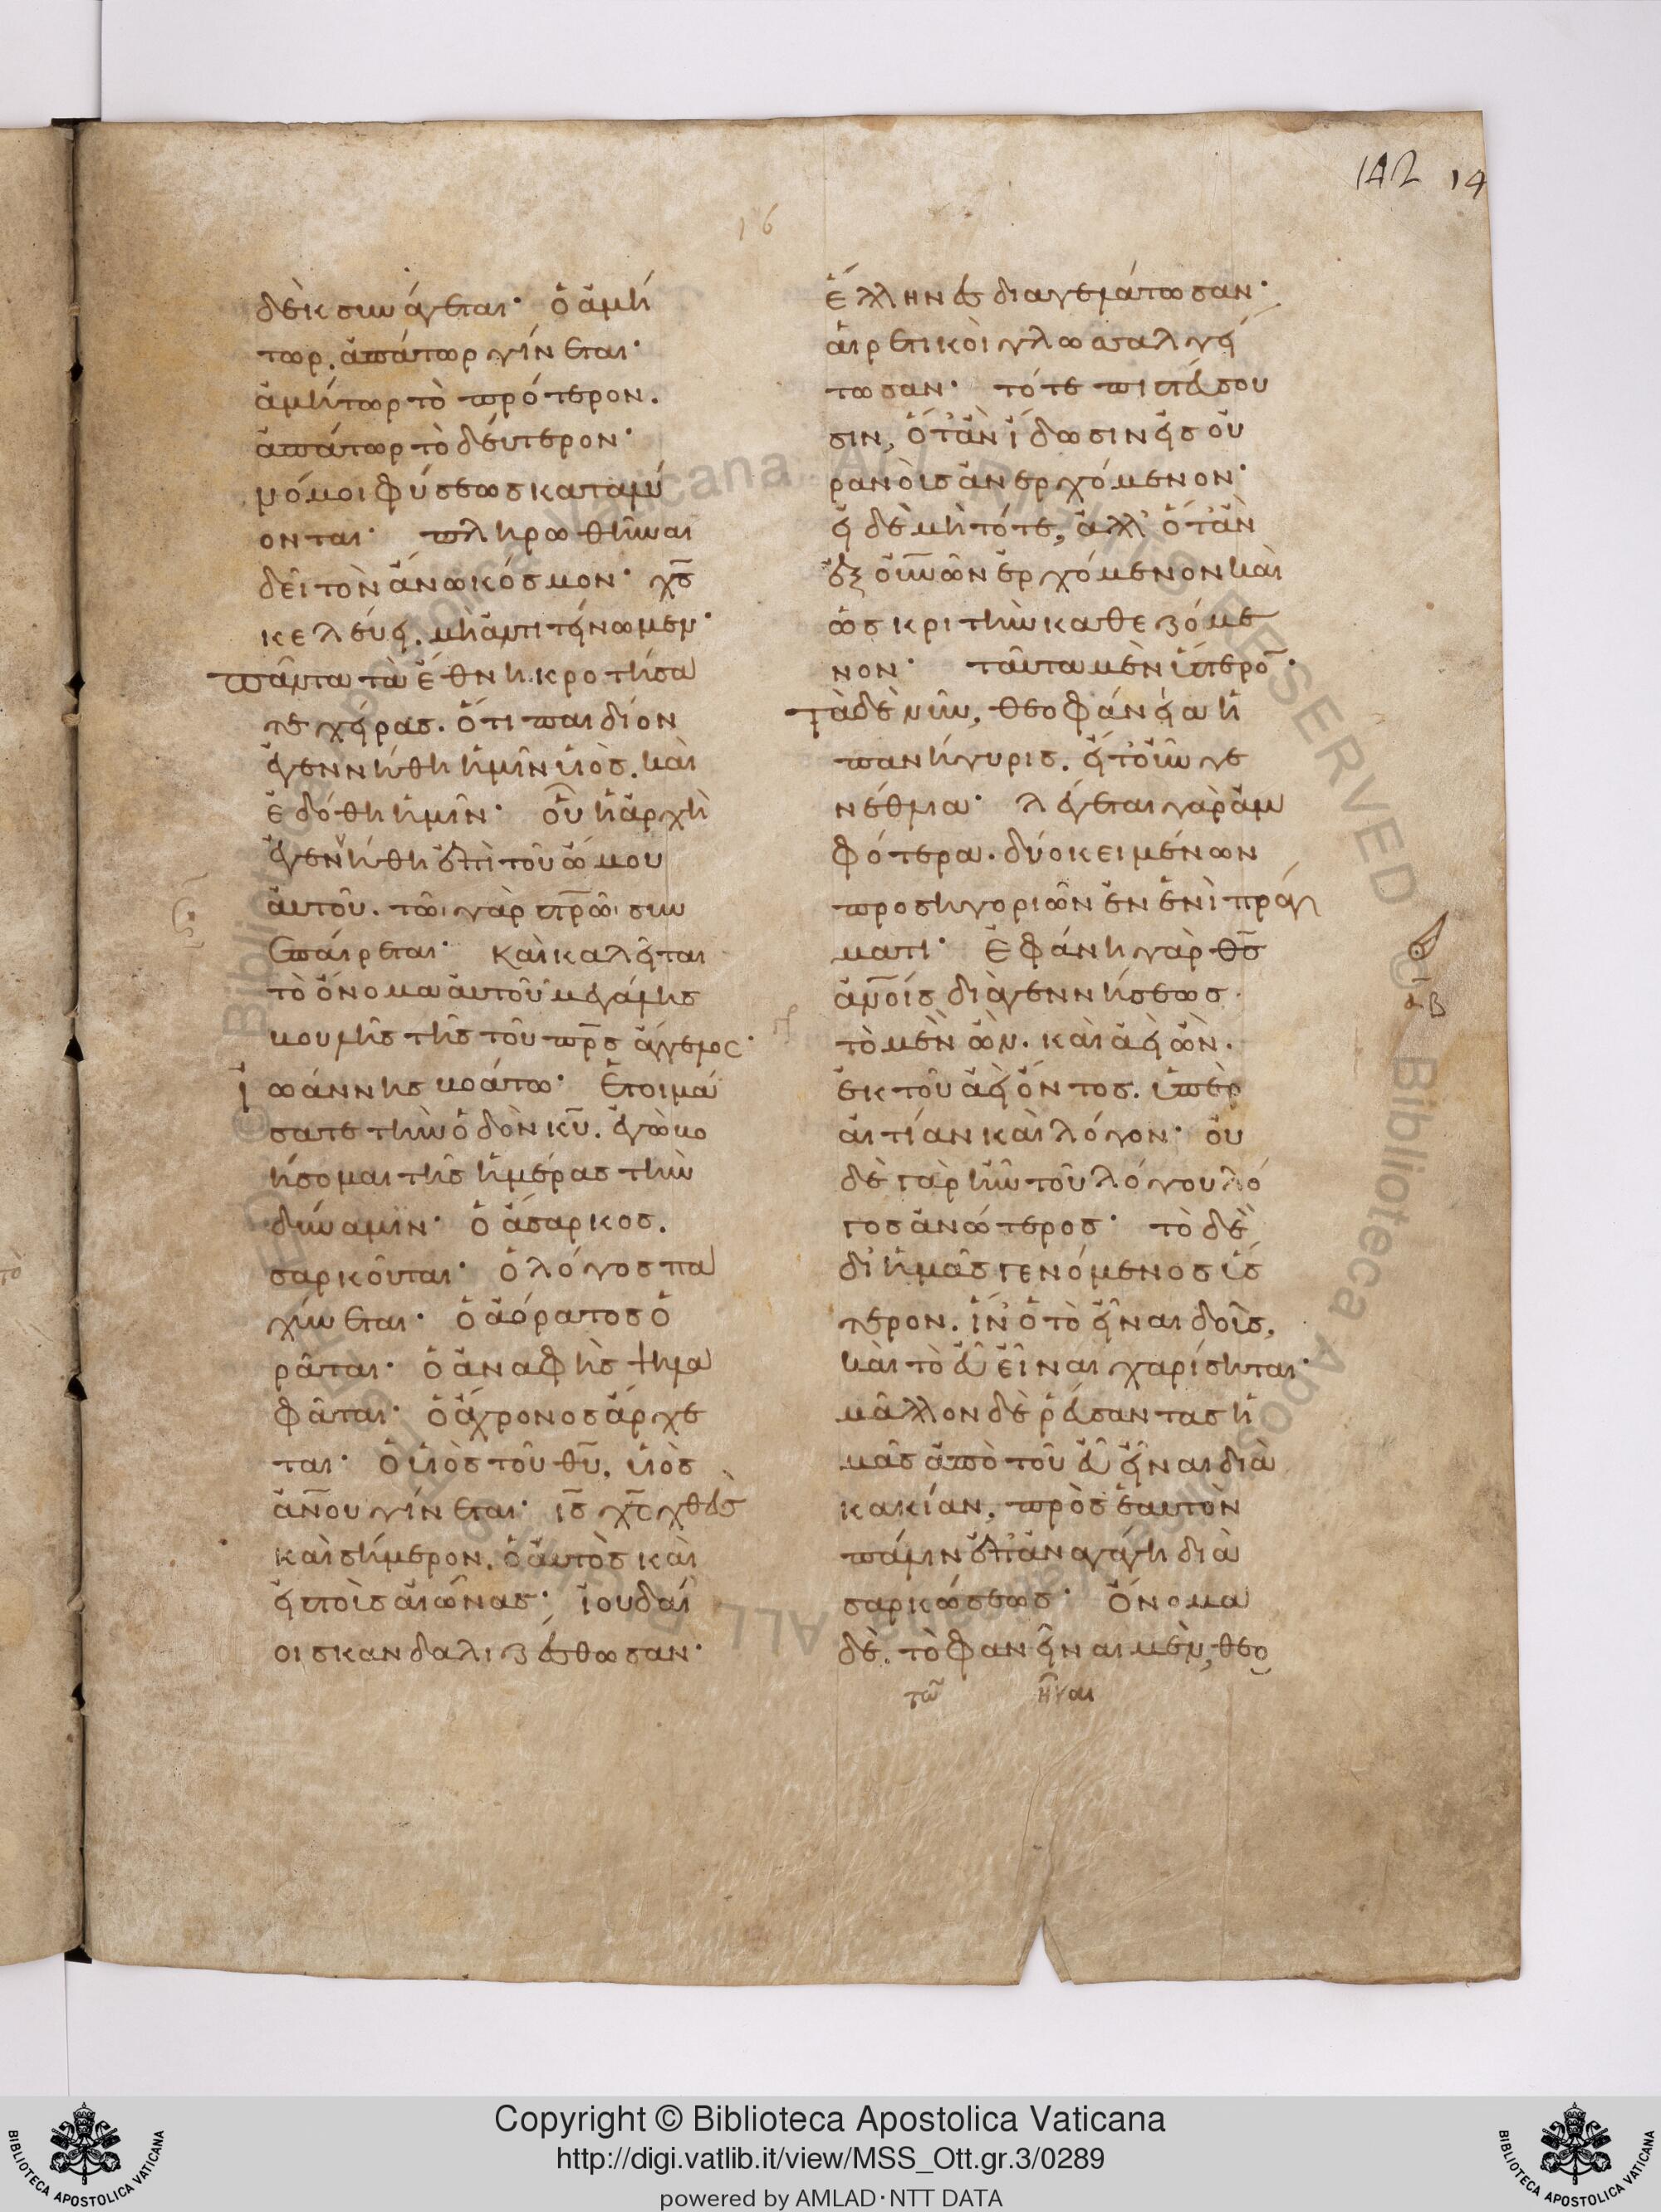 142 14
16
δὲκ συνάγεται· ὁ ἀμή
τωρ. ἀπάτωρ γίνεται·
ἀμήτωρ τὸ πρότερον.
ἀπάτωρ τὸ δεύτερον·
νόμοι φύσεως καταλύ
ονται· πληρωθῆναι
δεῖ τὸν ἄνω κόσμον· χ̅ς̅
κελεύει. μὴ ἀντιτείνωμεν·
πάντα τὰ ἔθνη κροτήσα
τε χεῖρας. ὅτι παιδίον
ἐγεννήθη ἡμῖν υἱὸς. καὶ
ἐδόθη ἡμῖν· οὗ ἡ ἀρχὴ
ἐγενήθη ἐπὶ τοῦ ὤμου
αὐτοῦ. τῶι γὰρ στ̅ρ̅ῶι συν
επαίρεται· καὶ καλεῖται
τὸ ὄνομα αὐτοῦ μεγάλης
βουλῆς τῆς τοῦ π̅ρ̅ς̅ ἄγγελος·
ἰωάννης βοάτω· ἑτοιμά
σατε τὴν ὁδὸν κ̅υ̅. ἐγὼ βο
ήσομαι τῆς ἡμέρας τὴν
δύναμιν· ὁ ἄσαρκος.
σαρκοῦται· ὁ λόγος πα
χύνεται· ὁ ἀόρατος ὁ
ρᾶται· ὁ ἀναφὴς ψηλα
φᾶται· ὁ ἄχρονος ἄρχε
ται· ὁ υἱὸς τοῦ θ̅υ̅. υἱὸς
ἀν̅ο̅υ γίνεται· ι̅ς̅ χ̅ς̅ χθὲς
καὶ σήμερον. ὁ αὐτὸς καὶ
εἰς τοὺς αἰῶνας· ἰουδαῖ
οι σκανδαλιζέσθωσαν·
ἕλληνες διαγελάτωσαν·
αἱρετικοὶ γλωσσαλγεί
τωσαν· τότε πιστεύσου
σιν, ὅταν ἴδωσιν εἰς οὐ
ρανοὺς ἀνερχόμενον·
εἰ δὲ μὴ τότε, ἀλλ' ὅταν
ἐξ οὐ̅ν̅ῶν ἐρχόμενον καὶ
ὡς κριτὴν καθεζόμε
νον· ταῦτα μὲν ὕστερο̅·
τὰ δὲ νῦν, θεοφάνεια ἡ
πανήγυρις. εἴτουν γε
νέθλια· λέγεται γὰρ ἀμ
φότερα. δύο κειμένων
προσηγοριῶν ἐν ἑνὶ πράγ
ματι· ἐφάνη γὰρ θ̅ς̅
ἀν̅ο̅ις διὰ γεννήσεως·
τὸ μὲν ὢν. καὶ ἀεὶ ὢν.
ἐκ τοῦ ἀεὶ ὄντος. ὑπὲρ
αἰτίαν καὶ λόγον· οὐ
δὲ γὰρ ἦν τοῦ λόγου λό
γος ἀνώτερος· τὸ δὲ
δι' ἡμᾶς γενόμενος ὕσ
τερον. ἵν' ὁ τὸ εἶναι δοὺς,
καὶ τὸ εὖ εἶναι χαρίσηται·
μᾶλλον δὲ ῥεύσαντας ἡ
μᾶς ἀπὸ τοῦ εὖ εἶναι διὰ
κακίαν, πρὸς ἑαυτὸν
πάλιν ἐπαναγάγη διὰ
σαρκώσεως· ὄνομα
δὲ. τὸ φανεῖναι μὲν, θεο
τῶ ῆναι
Copyright © Biblioteca Apostolica Vaticana
http://digi.vatlib.it/view/MSS_Ott.gr.3/0289
powered by AMLAD·NTT DATA